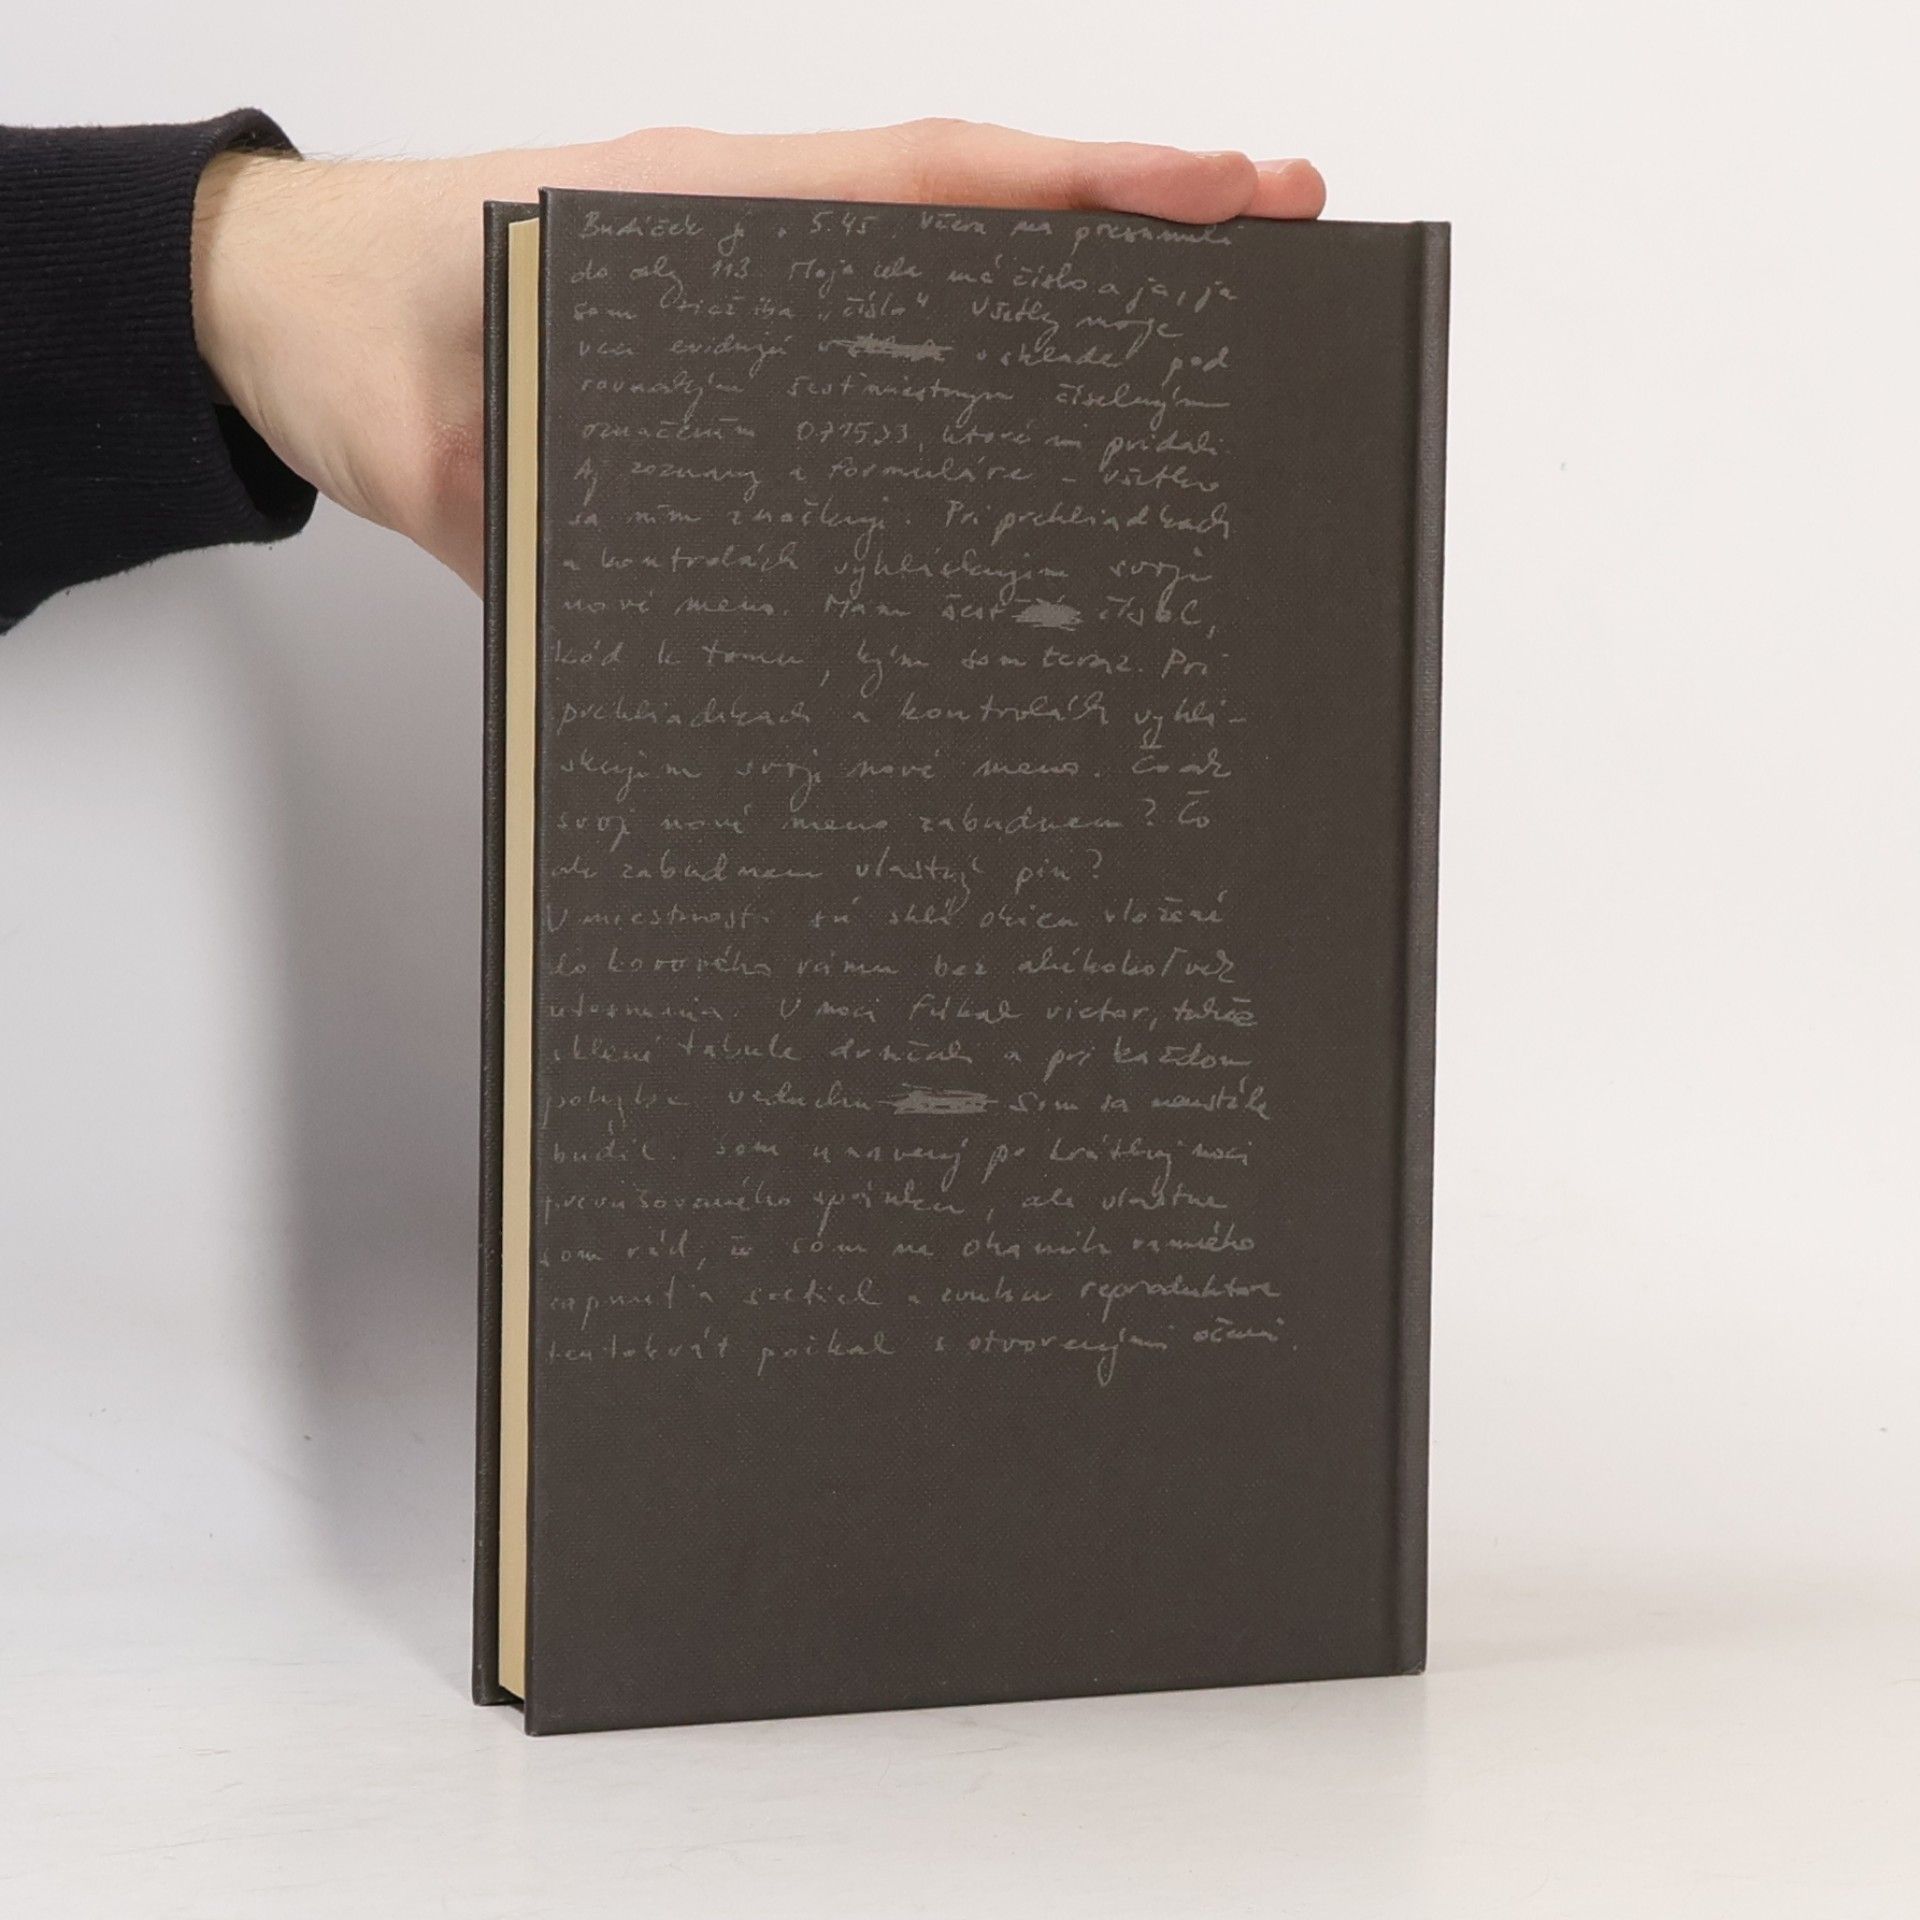 Budíček je o 5.45. Včera ma presunuli
do cely 113. Moja cela má číslo a ja, ja
som tiež iba „číslo“. Všetky moje
veci evidujú v sklade pod
rovnakým šesťmiestnym číselným
označením 071533, ktoré mi pridali.
Aj zoznamy a formuláre – všetko
sa ním značkuje. Pri prehliadkach
a kontrolách vyhlasujem svoje
nové meno. Mám šesť čísel,
kód k tomu, kým som teraz. Pri
prehliadkach a kontrolách vyhla-
sujem svoje nové meno. Čo ak
svoje nové meno zabudnem? Čo
ak zabudnem vlastný pin?
V miestnosti sú sklá okien vložené
do kovového rámu bez akéhokoľvek
utesnenia. V noci fúkal vietor, takže
sklené tabule drnčali a pri každom
pohybe vzduchu som sa neustále
budil. Som unavený po krátkej noci
prerušovaného spánku, ale vlastne
som rád, že som na okamih ranného
zapnutia svetiel a zvuku reproduktora
tentokrát počkal s otvorenými očami.